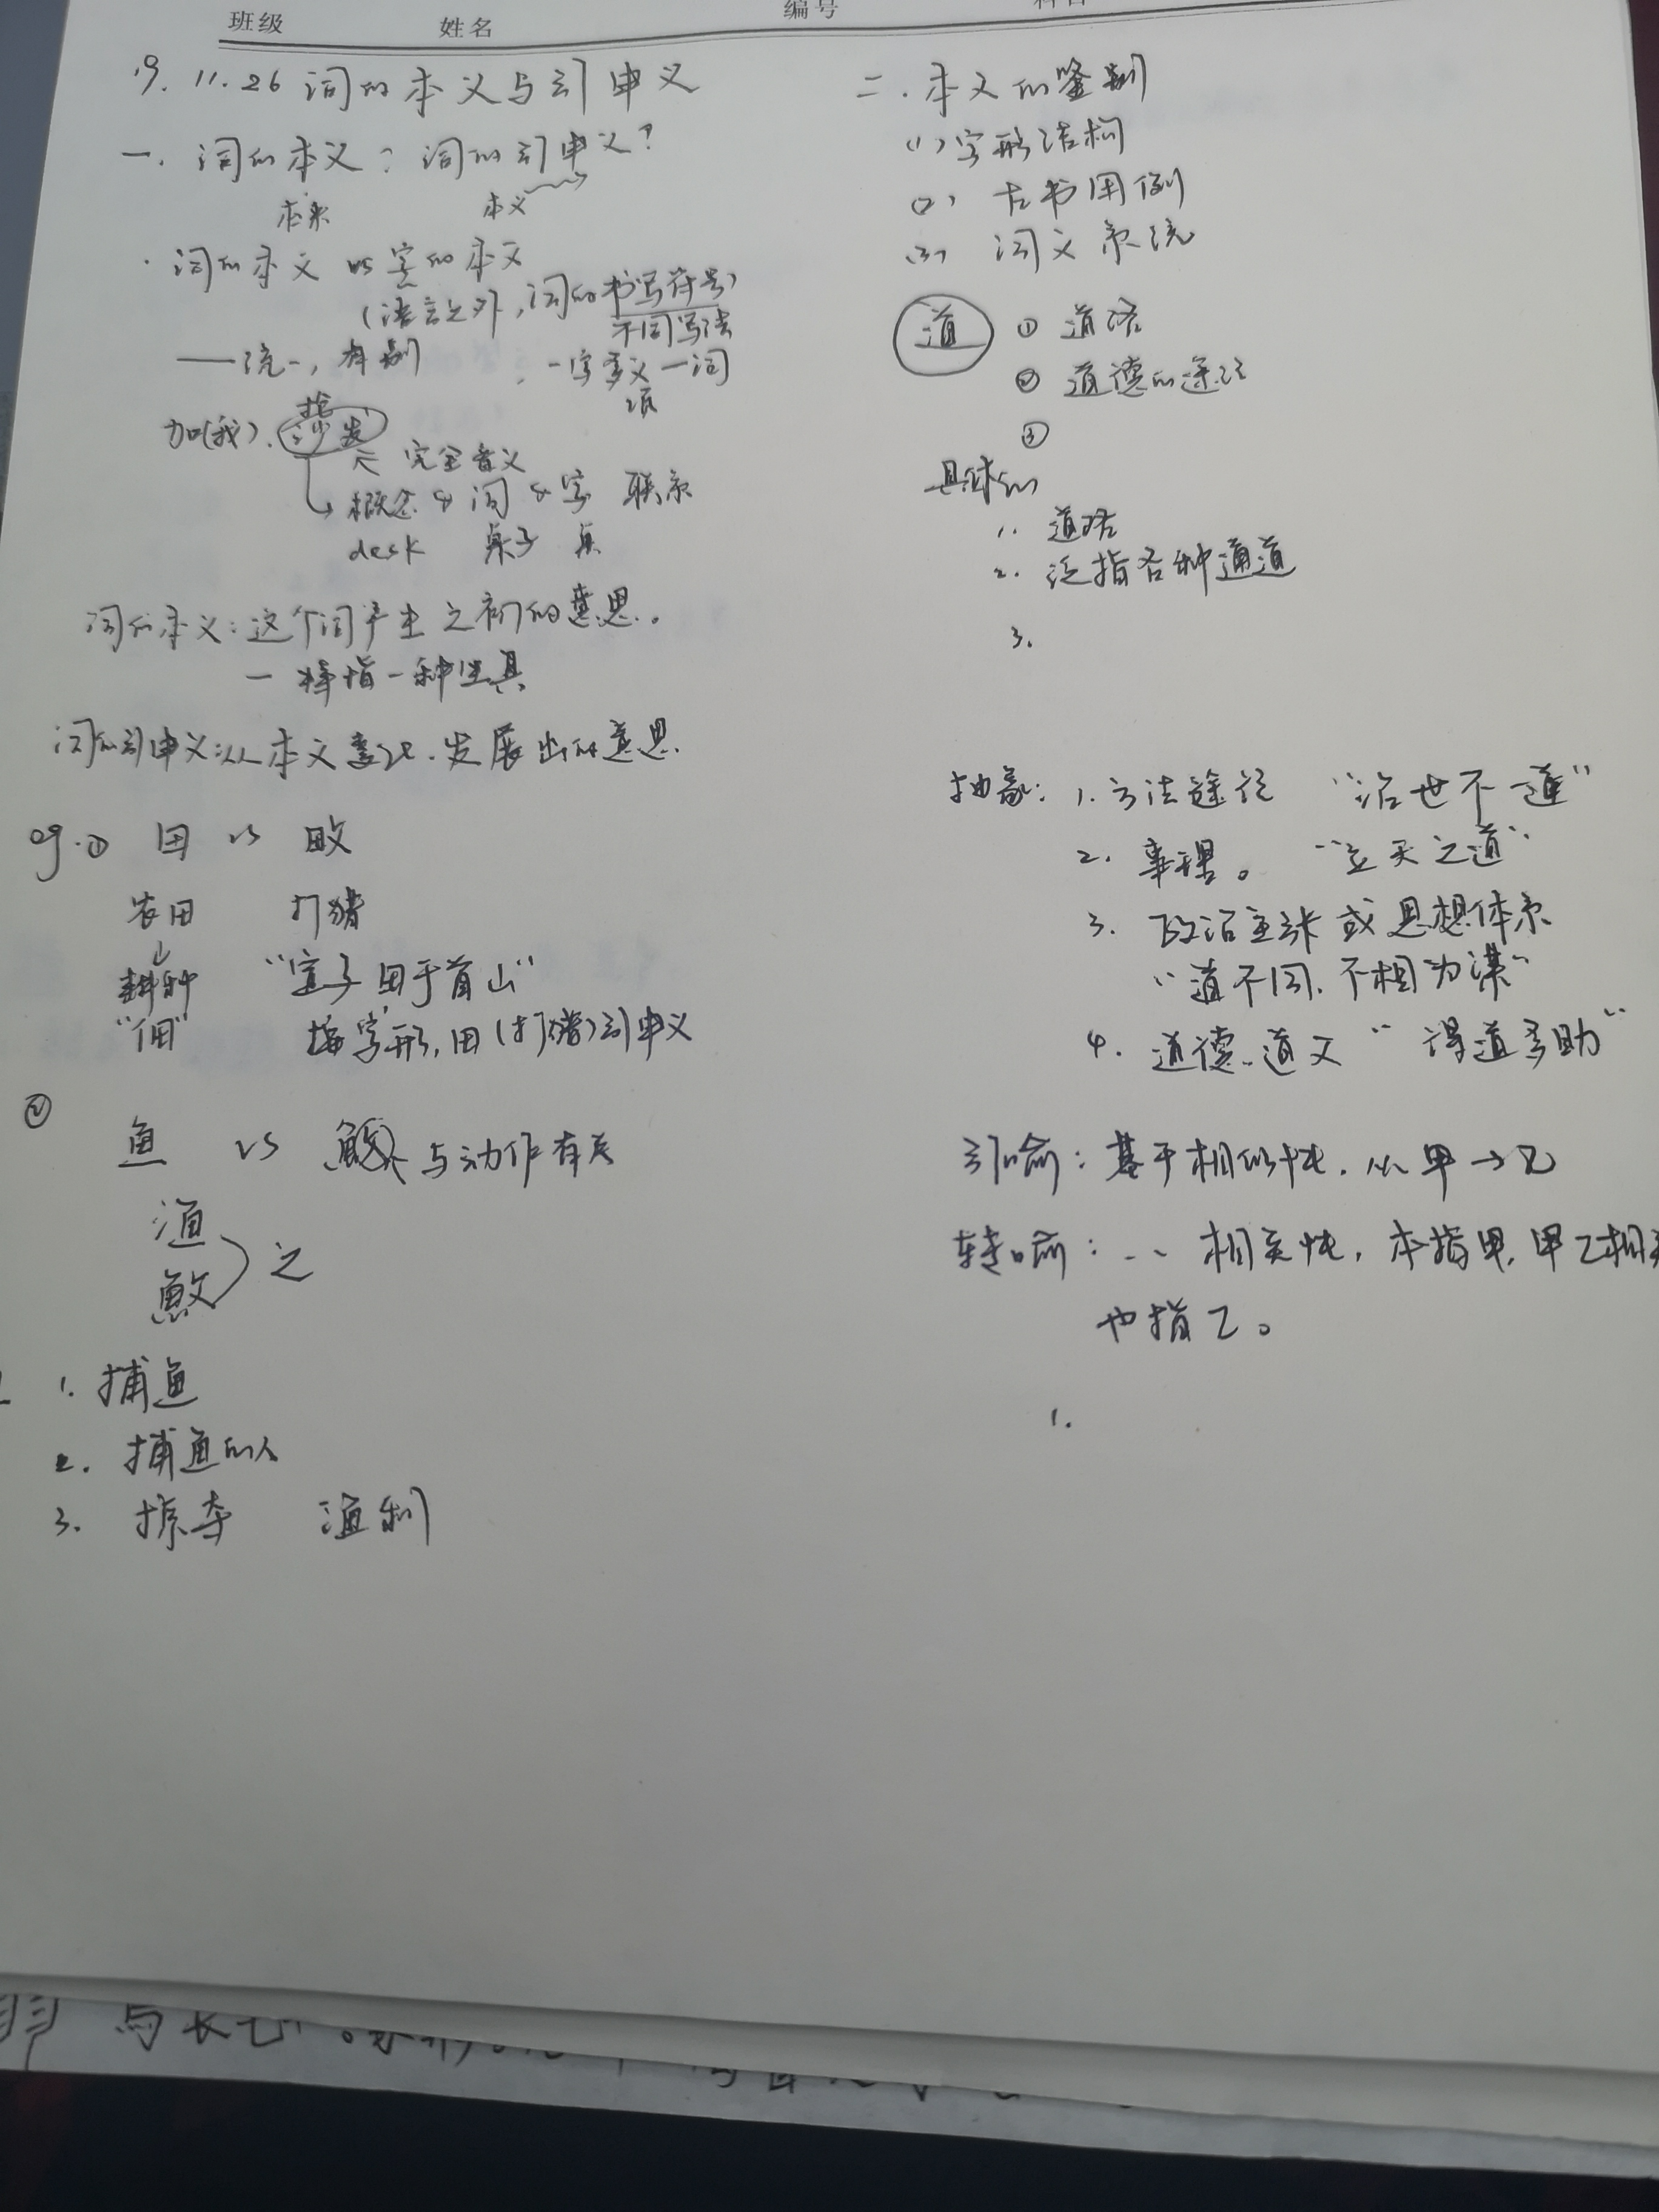 班级 姓名 编号
19.11.26 词的本义与引申义
一. 词的本义? 词的引申义?
本来 本义
·词的本义 vs 字的本义
(语言之外,词的书写符号)
不同写法
——统一,有别 一字多义一词
项
沙发
完全音义
概念 & 词 & 字 联系
desk 桌子 桌
词的本义:这个词产生之初的意思。
一种坐具
词的引申义:从本义 发展出的意思.
eg.① 田 vs 畋
农田 打猎
耕种 "宣子田于首山"
"佃" 字形,田(打猎)引申义
② 鱼 vs 与动作有关
渔
𩵎 之
1. 捕鱼
2. 捕鱼的人
3. 掠夺 渔利
二.本义的鉴别
(1)字形结构
(2) 古书用例
(3) 词义系统
道 ① 道路
② 道德的途径
③
具体的
1. 道路
2. 泛指各种通道
3.
抽象: 1.方法途径 "治世不一道"
2. 事理。 "立天之道"
3. 政治主张或思想体系
"道不同,不相为谋"
4. 道德、道义 "得道多助"
引喻:基于相似性,从甲→乙
转喻: 相关性,本指甲,甲乙相关
也指乙。
1.